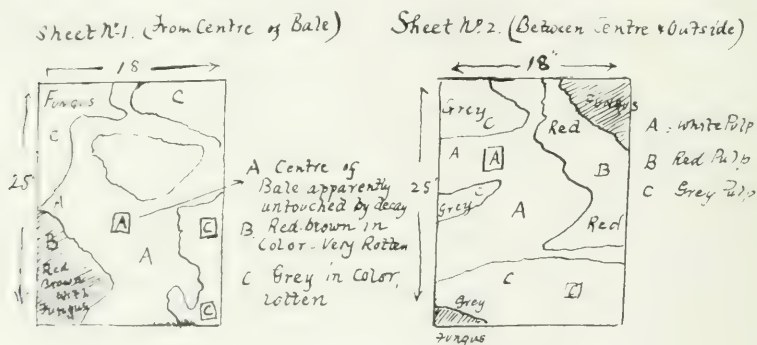 Sheet No. 1. (From Centre of Bale)
18
25"
Fungus
C
C
A
B
Red
Brown
with
Fungus
A
A
C
C
A Centre of
Bale apparently
untouched by decay
B Red-brown in
Color - Very Rotten
C Grey in Color,
rotten
Sheet No. 2. (Between Centre & Outside)
18"
25"
Grey
C
Red
Fungus
A
A
B
C
Grey
A
Red
C
C
Grey
Fungus
A : White Pulp
B Red Pulp
C Grey Pulp